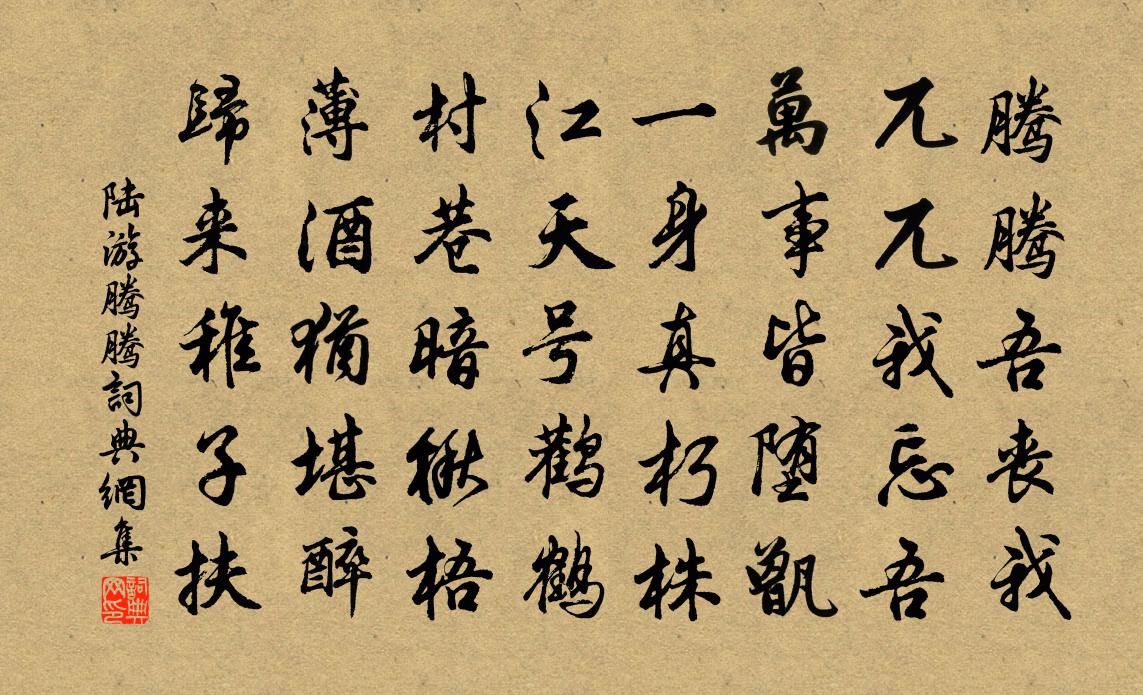 騰騰吾喪我
兀兀我忘吾
萬事皆堕甑
一身真朽株
江天号鸛鶴
村巷暗楸梧
薄酒猶堪醉
歸来稚子扶
陆游騰騰詞典網集
詞典网印